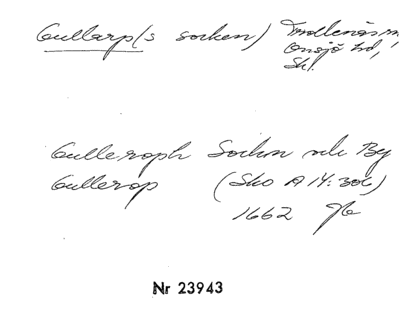 Gullarp(s socken) Trollenäs sn,
Onsjö hd,
Sk.
Gulleroph Sochn och By
Gullerop (Sko A 14:306)
1662
Nr 23943